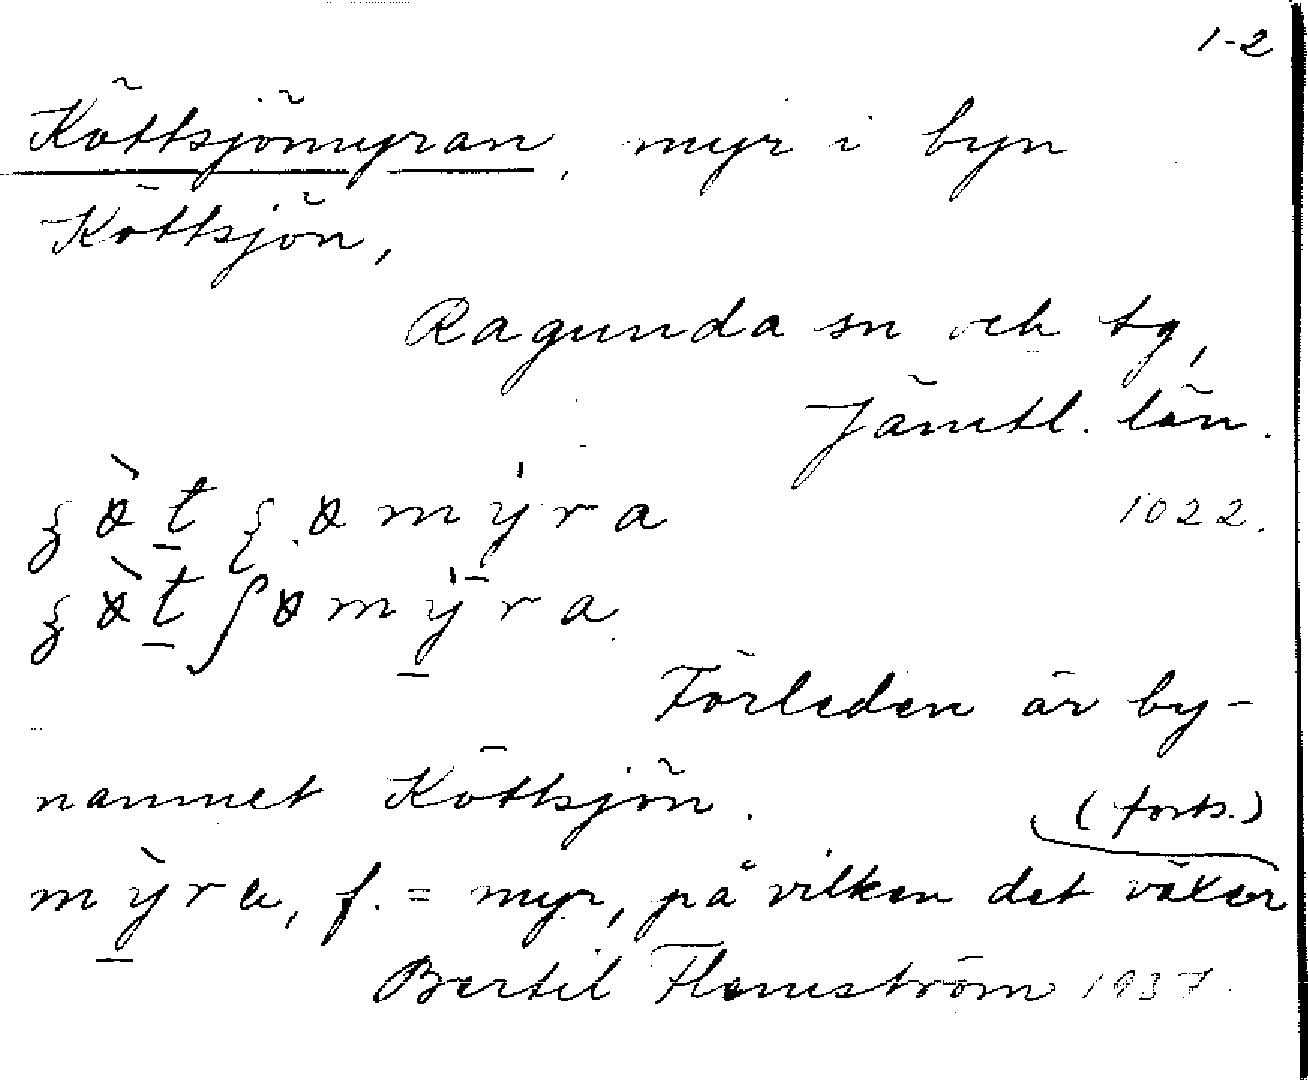 1-2
Köttsjömyran, myr i byn
Köttsjön,
Ragunda sn och tg,
Jämtl. län.
1022.
Förleden är by-
namnet Köttsjön.
(forts.)
mỳra, f. = myr, på vilken det växer
Bertil Flemström 1937.